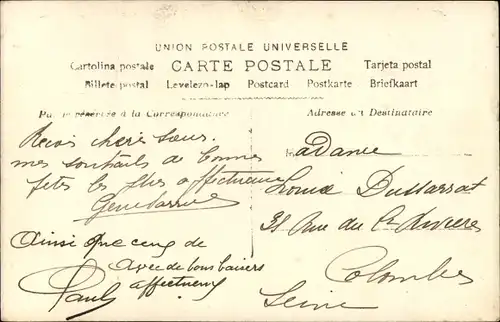 UNION POSTALE UNIVERSELLE
Cartolina postale CARTE POSTALE Tarjeta postal
Billete postal Levelezo-lap Postcard Postkarte Briefkaart
Partie réservée à la Correspondance
Adresse du Destinataire
Reçois chère sœur
mes souhaits de bonne
fêtes les plus affectueux
Ainsi que ceux de
Paul
avec de bons baisers
affectueux
Madame
Louise Dussarrat
Rue du
Colombes
Seine